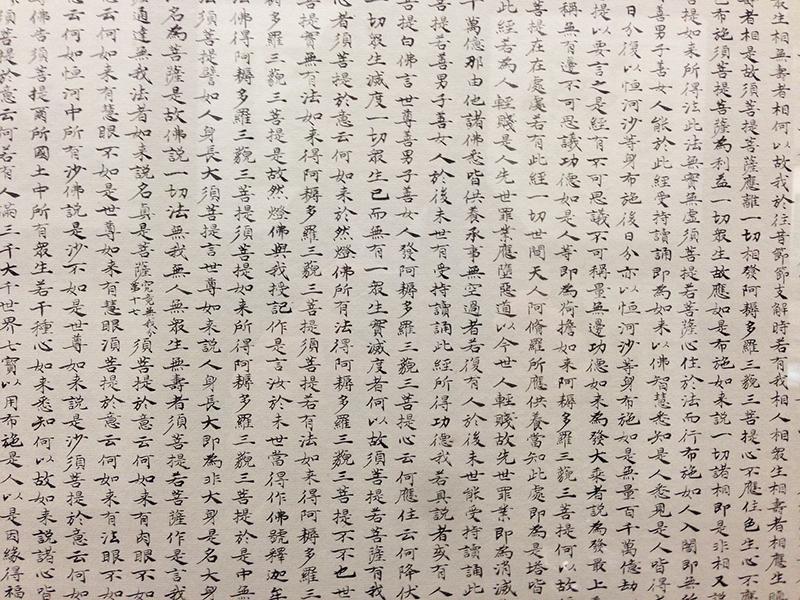 眾生相無壽者相何以故我於往昔節節支解時若有我相人相眾生相壽者相應生瞋
壽者相是故須菩提菩薩應離一切相發阿耨多羅三藐三菩提心不應住色生心不應
布施須菩提菩薩為利益一切眾生故應如是布施如來說一切諸相即是非相又說
提如來所得法此法無實無虛須菩提若菩薩心住於法而行布施如人入闇即無所
善男子善女人能於此經受持讀誦即為如來以佛智慧悉知是人悉見是人皆得
日分復以恒河沙等身布施後日分亦以恒河沙等身布施如是無量百千萬億劫
提以要言之是經有不可思議不可稱量無邊功德如來為發大乘者說為發最上
稱無有邊不可思議功德如是人等即為荷擔如來阿耨多羅三藐三菩提何以故
菩提在在處處若有此經一切世間天人阿脩羅所應供養當知此處即為是塔皆
此經若為人輕賤是人先世罪業應墮惡道以今世人輕賤故先世罪業即為消滅
千萬億那由他諸佛悉皆供養承事無空過者若復有人於後末世能受持讀誦此
菩提若善男子善女人於後末世有受持讀誦此經所得功德我若具說者或有人
菩提白佛言世尊善男子善女人發阿耨多羅三藐三菩提心云何應住云何降伏
一切眾生滅度一切眾生已而無有一眾生實滅度者何以故須菩提若菩薩有我
心者須菩提於意云何如來於然燈佛所有法得阿耨多羅三藐三菩提不不也世
菩提實無有法如來得阿耨多羅三藐三菩提須菩提若有法如來得阿耨多羅三
法佛得阿耨多羅三藐三菩提是故然燈佛與我授記作是言汝於來世當得作佛號釋迦牟
法佛得阿耨多羅三藐三菩提須菩提如來所得阿耨多羅三藐三菩提於是中無
法須菩提譬如人身長大須菩提言世尊如來說人身長大即為非大身是名大身
名為菩薩是故佛說一切法無我無人無眾生無壽者須菩提若菩薩作是言我
通達無我法者如來說名真是菩薩究竟無我分第十七須菩提於意云何如來有肉眼不如
云何如來有慧眼不如是世尊如來有慧眼須菩提於意云何如來有法眼不如
云何如恒河中所有沙佛說是沙不如是世尊如來說是沙須菩提於意云何如
佛告須菩提爾所國土中所有眾生若干種心如來悉知何以故如來說諸心皆
須菩提於意云何若有人滿三千大千世界七寶以用布施是人以是因緣得福